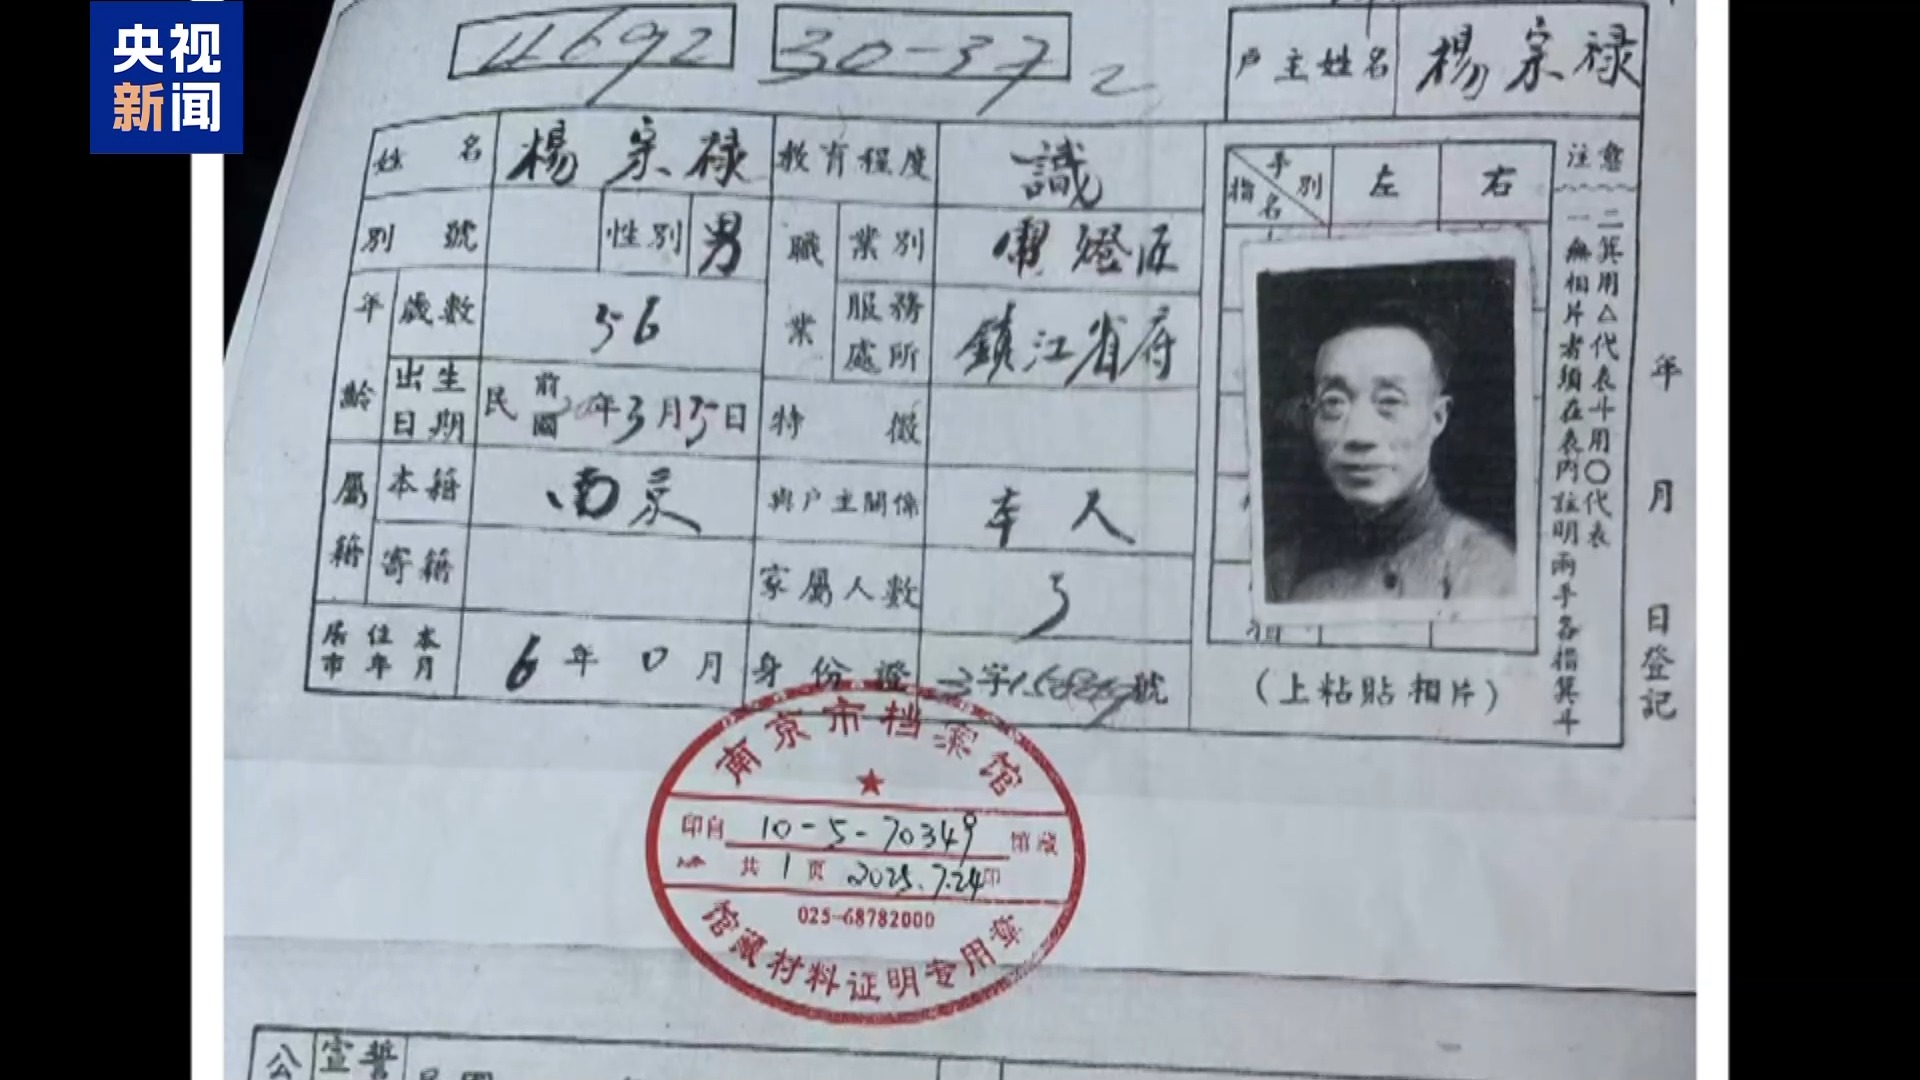 央视
新闻
11692
30-37
2
户主姓名 楊宗禄
姓名 楊宗禄 教育程度 識
別號 性別 男 職業 業別 燈匠
年齡 歲數 56 服務處所 鎮江省府
出生日期 民國前 年3月 日 特徵
屬籍 本籍 南京 與户主關係 本人
寄籍 家屬人數 3
居住本市年月 6年0月 身份證 字 號
手別 指名 左 右
(上粘貼相片)
注意
一無相片者須在表內註明兩手各指箕斗
二箕用△代表斗用〇代表
年 月 日登記
南京市档案馆
印自 10-5-70349 馆藏
共1页 2025.7.24印
025-68782000
馆藏材料证明专用章
公 宣誓
民國